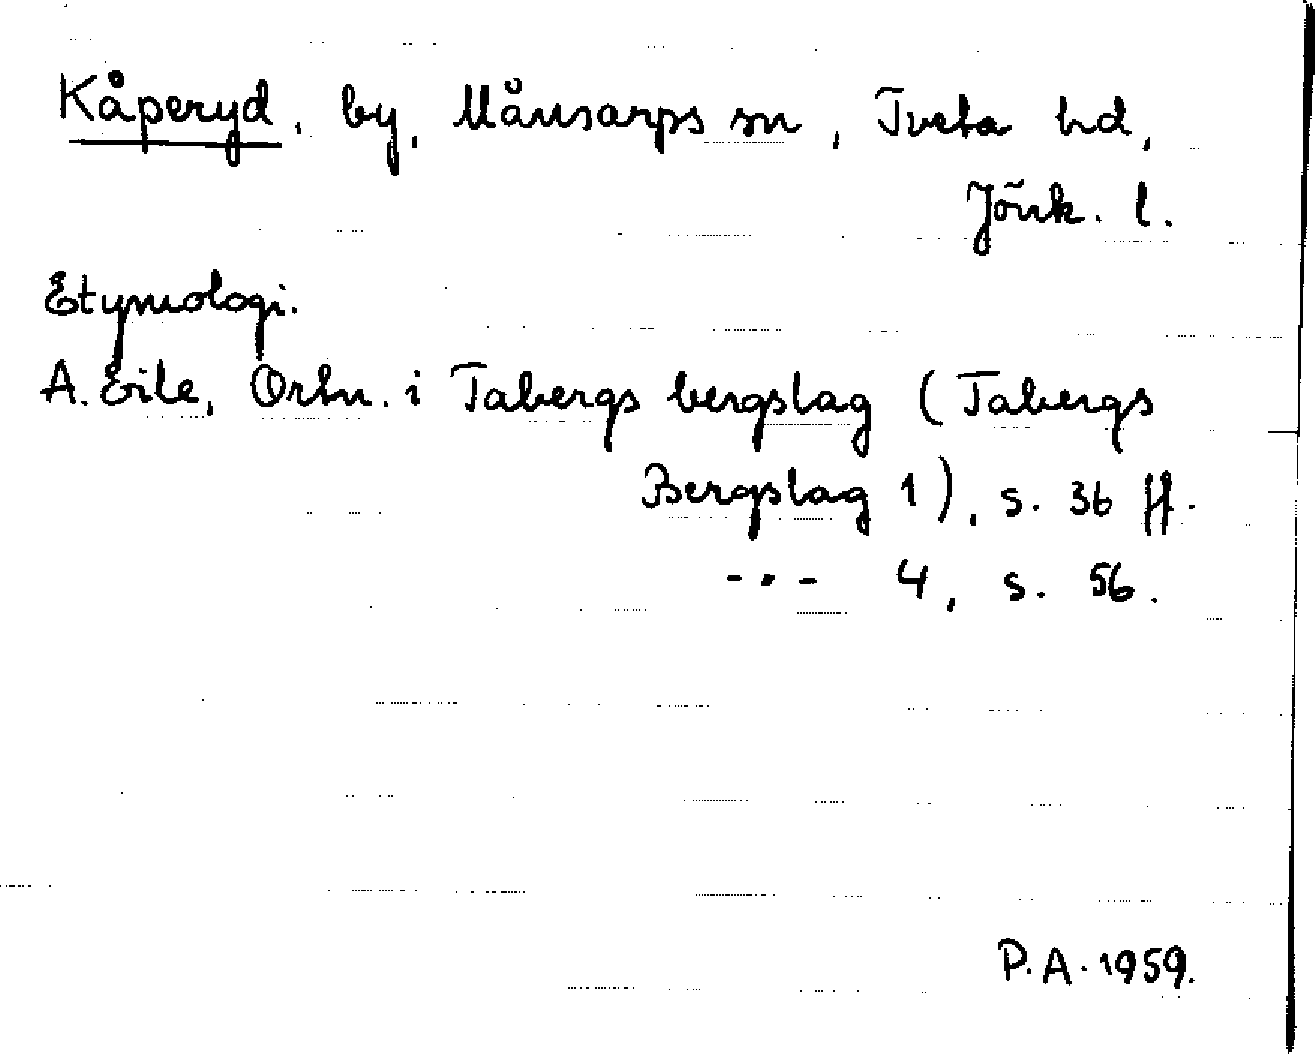 Kåperyd, by, Månsarps sn, Tveta hd,
Jönk. l.
Etymologi.
A. Eile, Ortn. i Tabergs bergslag (Tabergs
Bergslag 1), s. 36 ff.
-"- 4, s. 56.
P.A. 1959.